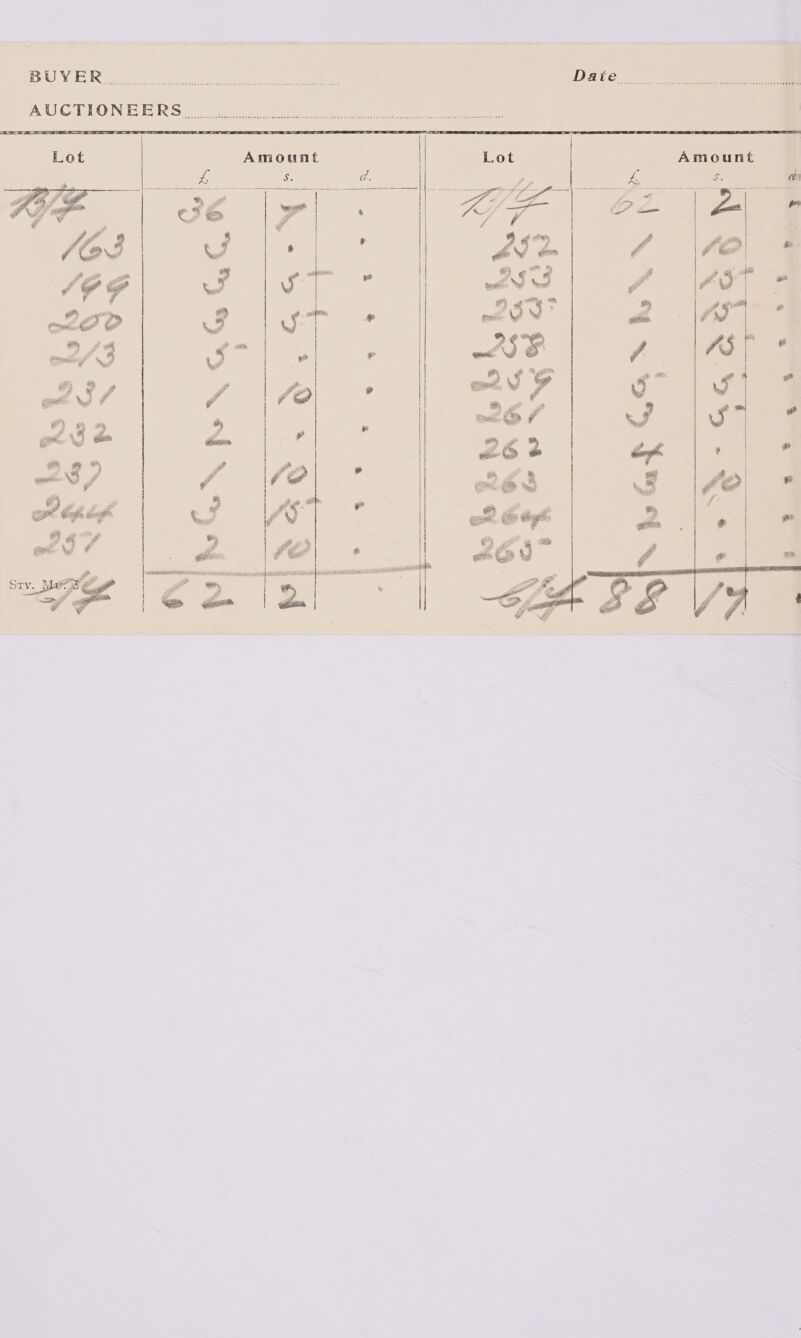 BUYER Date
AUCTIONEERS
Lot Amount Lot Amount
£ s. d. £ s. d.
B/F 36 7 . B/F 62 2 "
163 3 . " 252 1 10 "
199 3 5 " 253 1 15 "
200 3 5 " 255 2 15 "
213 5 " " 258 1 15 "
231 1 10 " 259 5 5 "
232 2 " " 261 3 5 "
237 1 10 " 262 4 " "
244 3 15 " 263 3 10 "
251 2 10 " 264 2 " "
265 1 " "
C/F 62 2 . C/F 88 17